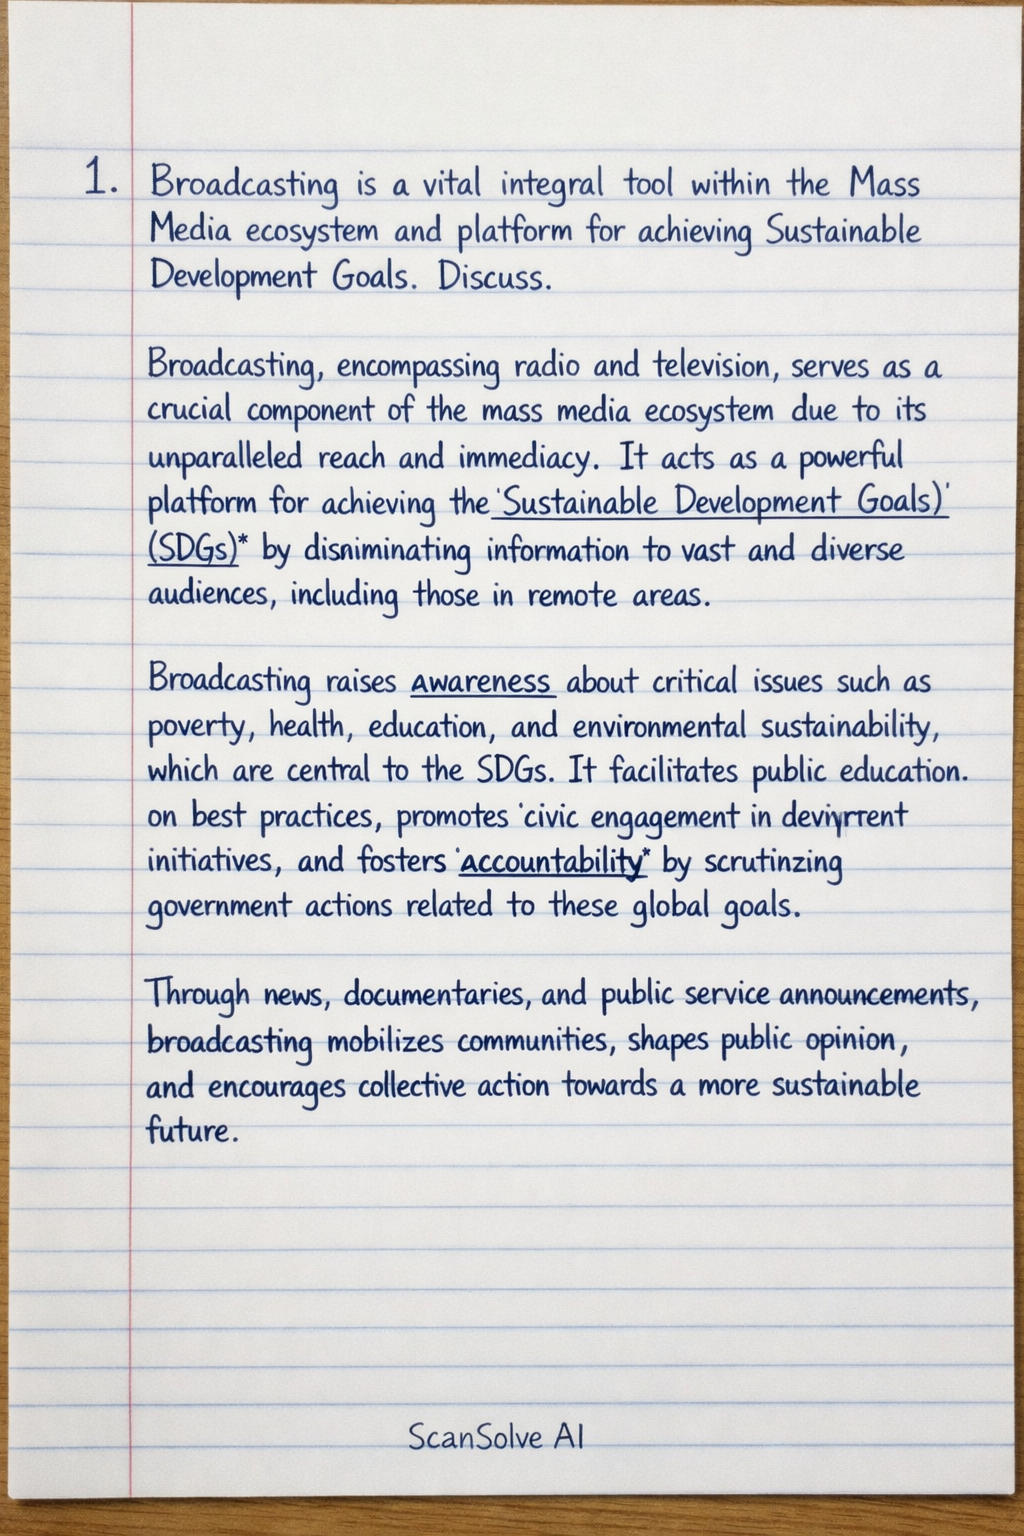 1. Broadcasting is a vital integral tool within the Mass
Media ecosystem and platform for achieving Sustainable
Development Goals. Discuss.
Broadcasting, encompassing radio and television, serves as a
crucial component of the mass media ecosystem due to its
unparalleled reach and immediacy. It acts as a powerful
platform for achieving the 'Sustainable Development Goals)'
(SDGs)* by disniminating information to vast and diverse
audiences, including those in remote areas.
Broadcasting raises Awareness about critical issues such as
poverty, health, education, and environmental sustainability,
which are central to the SDGs. It facilitates public education.
on best practices, promotes 'civic engagement in
initiatives, and fosters 'accountability* by scrutinzing
government actions related to these global goals.
Through news, documentaries, and public service announcements,
broadcasting mobilizes communities, shapes public opinion,
and encourages collective action towards a more sustainable
future.
ScanSolve AI